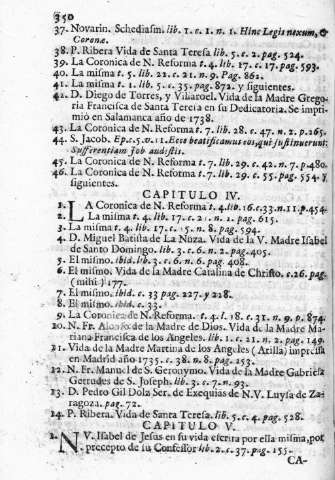 350
37. Novarin. Schediasm. lib. 1. c. 1. n. 1. Hinc Legis nexum, &
Coronæ.
38. P. Ribera Vida de Santa Teresa lib. 5. c. 2. pag. 524.
39. La Coronica de N. Reforma t. 4. lib. 17. c. 17. pag. 593.
40. La misma t. 5. lib. 22. c. 21. n. 9. Pag. 862.
41. La misma t. 1. lib. 5. c. 35. pag. 872. y siguientes.
42. D. Diego de Torres, y Villaroel. Vida de la Madre Grego-
ria Francisca de Santa Teresa en su Dedicatoria. Se impri-
mió en Salamanca año de 1738.
43. La Coronica de N. Reforma t. 7. lib. 28. c. 47. n. 2. p. 265.
44. S. Jacob. Ep. c. 5. v. 11. Ecce beatificamus eos, qui sustinuerunt:
Sufferentiam Job audistis.
45. La Coronica de N. Reforma t. 7. lib. 29. c. 42. n. 7. p. 480.
46. La Coronica de N. Reforma t. 7. lib. 29. c. 55. pag. 554. y
siguientes.
CAPITULO IV.
1. LA Coronica de N. Reforma t. 4. lib. 16. c. 33. n. 11. p. 454.
2. La misma t. 4. lib. 17. c. 21. n. 1. pag. 615.
3. La misma t. 4. lib. 17. c. 15. n. 8. pag. 594.
4. D. Miguel Batista de La Nuza. Vida de la V. Madre Isabel
de Santo Domingo. lib. 3. c. 6. n. 2. pag. 405.
5. El mismo. ibid. lib. 3. c. 6. n. 6. pag. 408.
6. El mismo. Vida de la Madre Catalina de Christo. c. 26. pag.
(mihi) 177.
7. El mismo. ibid. c. 33 pag. 227. y 228.
8. El mismo. ibid. c. 33.
9. La Coronica de N. Reforma. t. 4. l. 18. c. 31. n. 9. p. 874.
10. N. Fr. Alonso de la Madre de Dios. Vida de la Madre Ma-
riana Francisca de los Angeles. lib. 1. c. 21. n. 2. pag. 149.
11. Vida de la Madre Martina de los Angeles (Arilla) impressa
en Madrid año 1735. c. 38. n. 8. pag. 253.
12. N. Fr. Manuel de S. Geronymo. Vida de la Madre Gabriela
Getrudes de S. Joseph. lib. 3. c. 7. n. 93.
13. D. Pedro Gil Dolz Ser. de Exequias de N V. Luysa de Za-
ragoza. pag. 72.
14. P. Ribera. Vida de Santa Teresa. lib. 5. c. 4. pag. 528.
CAPITULO V.
1. NV. Isabel de Jesus en su vida escrita por ella misma, por
precepto de su Confessor lib. 2. c. 37. pag. 155.
CA-